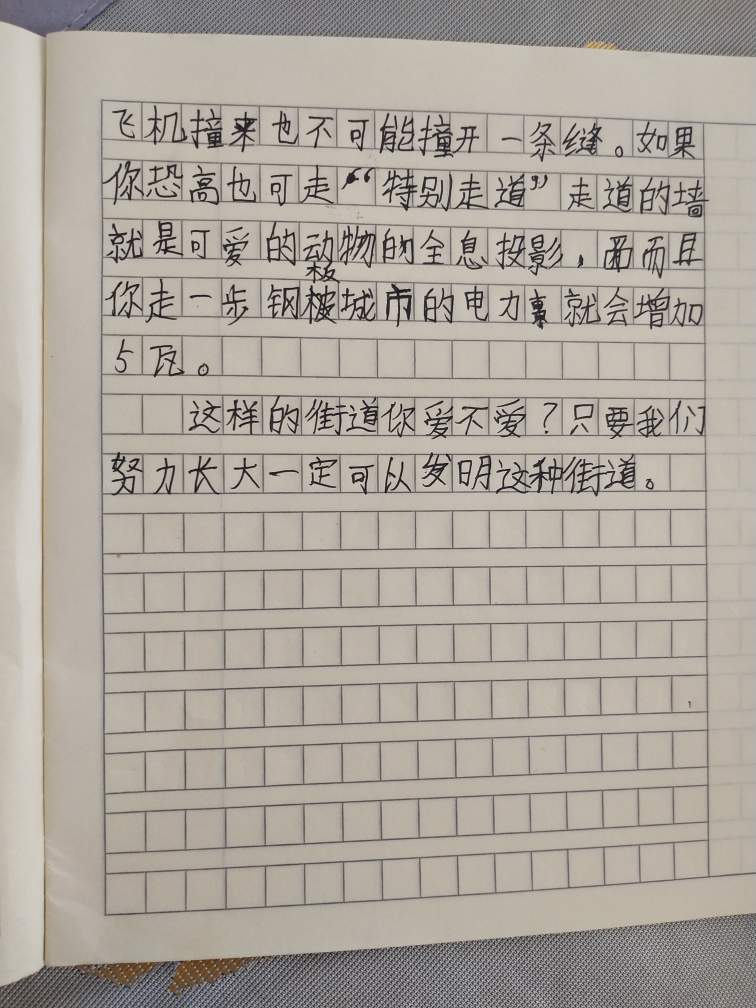 飞机撞来也不可能撞开一条缝。如果
你恐高也可走“特别走道”走道的墙
就是可爱的动物的全息投影，而且
你走一步钢板城市的电力就会增加
5瓦。
这样的街道你爱不爱？只要我们
努力长大一定可以发明这种街道。